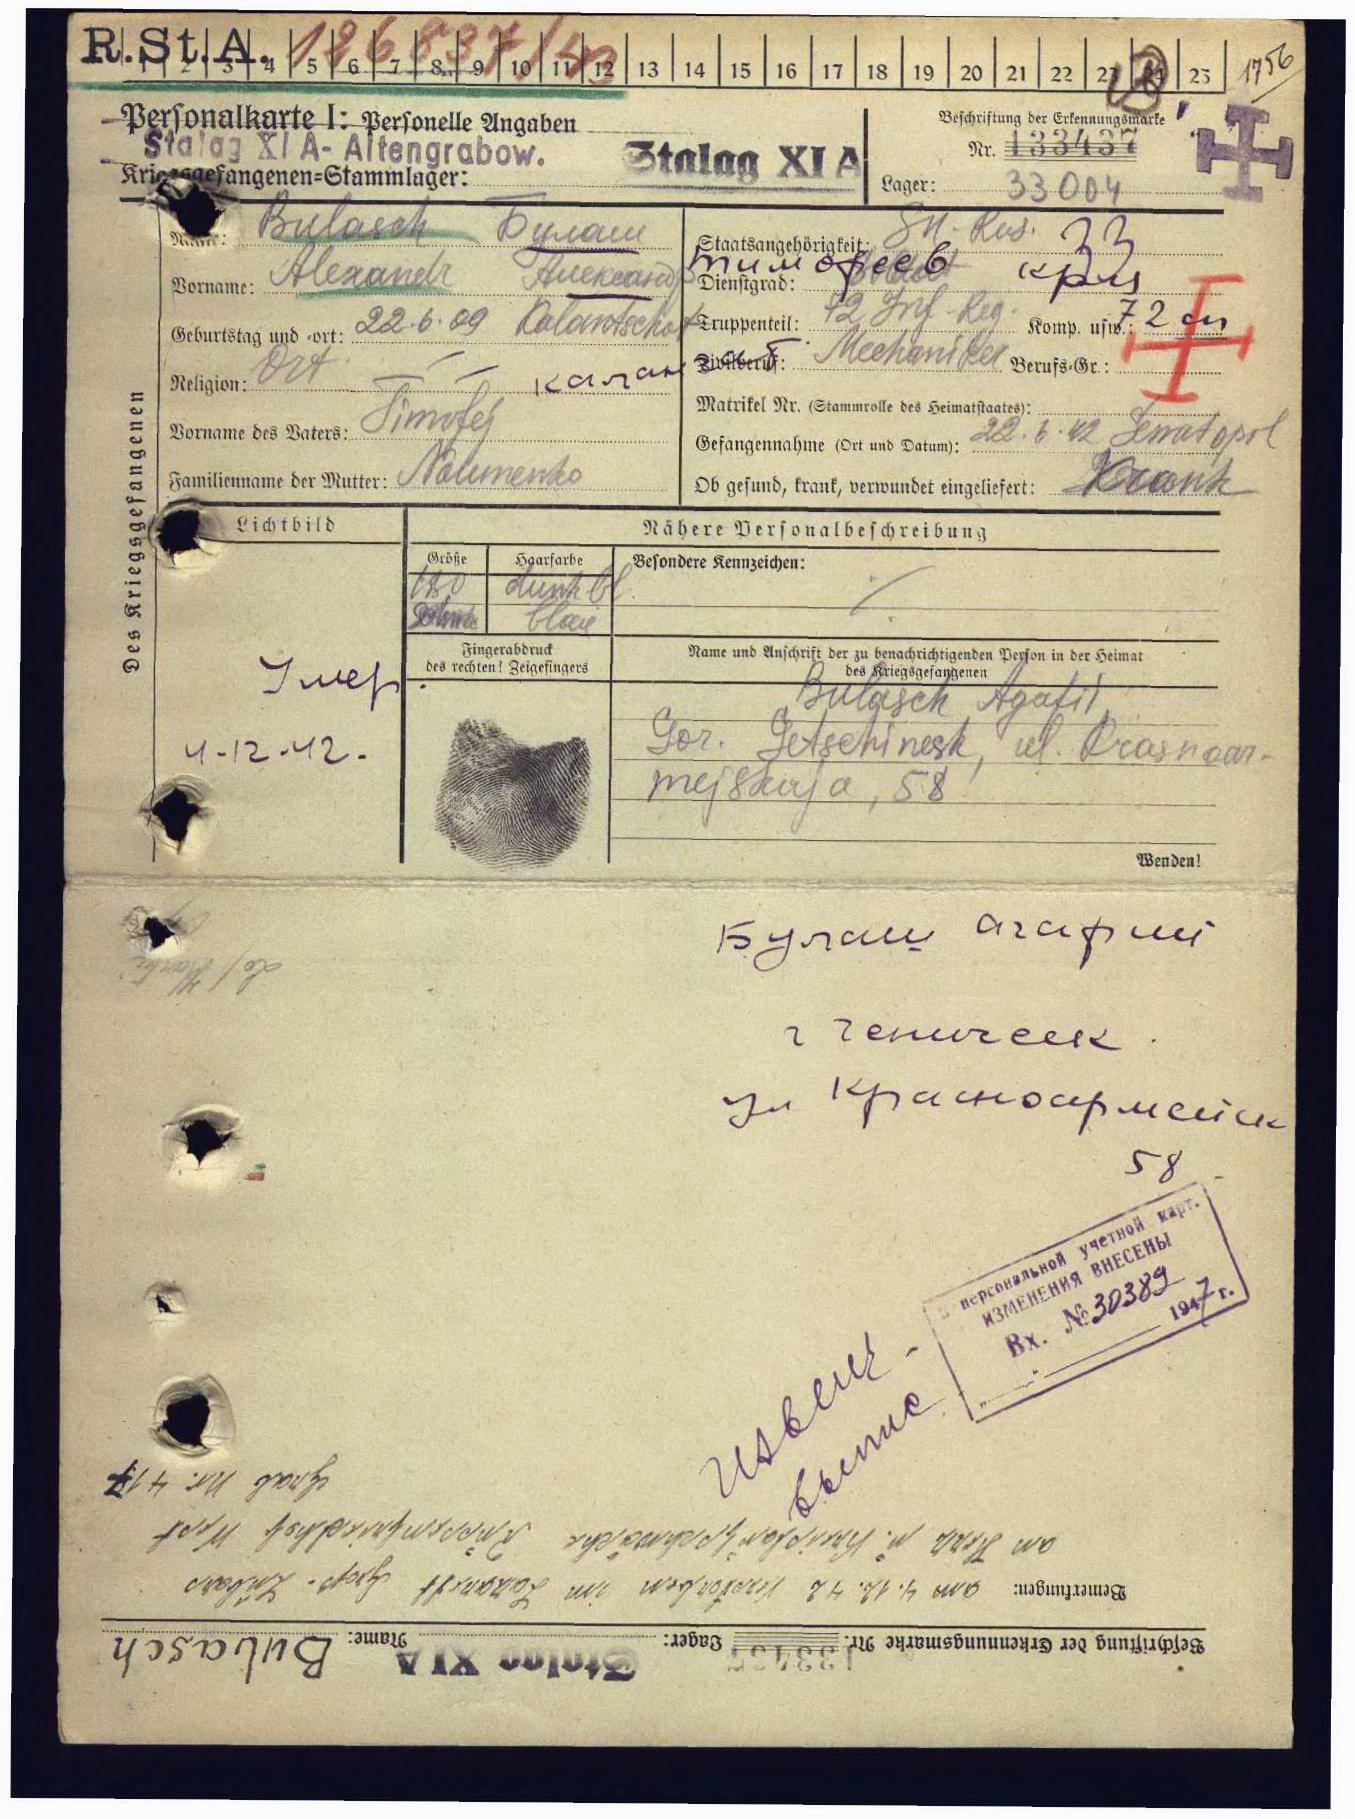 R.St.A. 126837/42
1 2 3 4 5 6 7 8 9 10 11 12 13 14 15 16 17 18 19 20 21 22 23 24 25
1756
Personalkarte I: Personelle Angaben
Stalag XI A - Altengrabow.
Kriegsgefangenen-Stammlager: Stalag XI A
Beschriftung der Erkennungsmarke
Nr. 133437
Lager: 33004
Des Kriegsgefangenen
Name: Bulasch Булаш
Vorname: Alexandr Александр Тимофеев
Geburtstag und -ort: 22.6.09 Kalantschak
Religion: Ort. — —
калан
Vorname des Vaters: Timofej
Familienname der Mutter: Naumenko
Staatsangehörigkeit: Russ. 33
Dienstgrad: Soldat кра
Truppenteil: 72 Inf. Reg. Komp. usw.: 72 сп
Zivilberuf: Mechaniker Berufs-Gr.:
Matrikel Nr. (Stammrolle des Heimatstaates):
Gefangennahme (Ort und Datum): 22.6.42 Sewastopol
Ob gesund, krank, verwundet eingeliefert: Krank
Lichtbild
Nähere Personalbeschreibung
Größe Haarfarbe Besondere Kennzeichen:
180 dunkbl. /
blau
Fingerabdruck
des rechten! Zeigefingers
Name und Anschrift der zu benachrichtigenden Person in der Heimat
des Kriegsgefangenen
Умер.
4-12-42.
Bulasch Agafij
Gor. Getschinesk, ul. Krasnoar-
mejskaja, 58
Wenden!
Булаш Агафий
г Геническ.
ул Красноармейск
58
В персональной учетной карт.
ИЗМЕНЕНИЯ ВНЕСЕНЫ
Вх. № 30389
1947 г.
Извещ-
выпис
Beschriftung der Erkennungsmarke Nr. 133437 Lager: Stalag XI A Name: Bulasch
Bemerkungen: am 4.12.42 verstorben im Lazarett Groß-Lübars
am Herz u. Kreislaufschwäche Russenfriedhof West
Grab Nr. 417